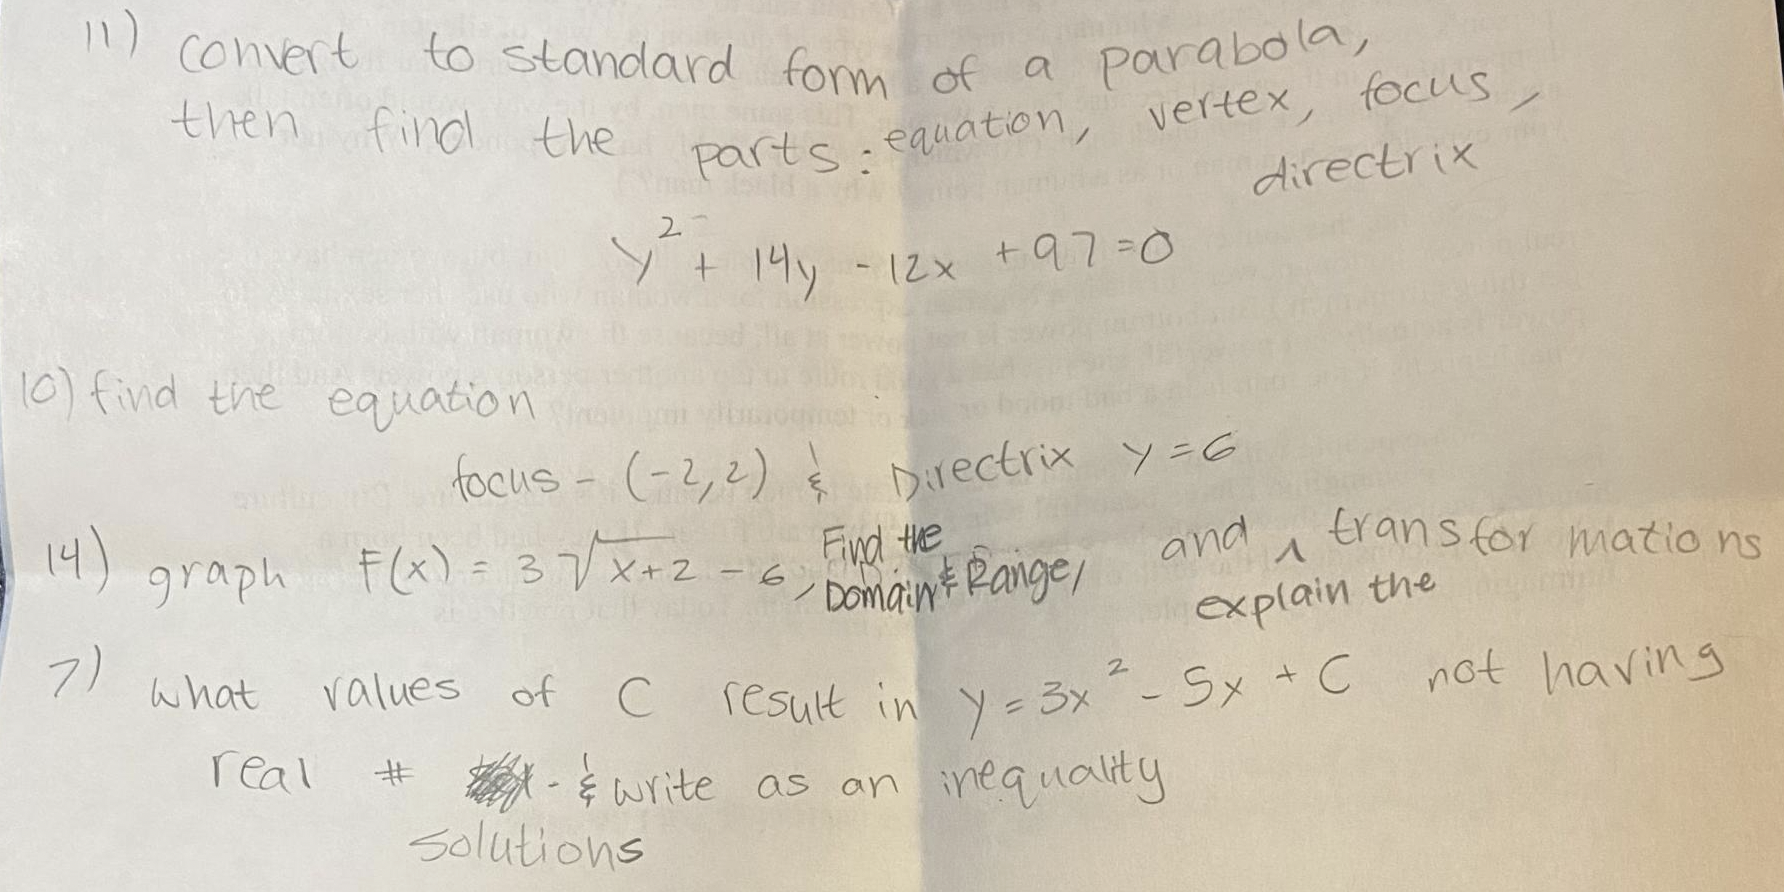 11) convert to standard form of a parabola,
then find the parts: equation, vertex, focus,
directrix
y² + 14y - 12x + 97 = 0
10) find the equation
focus - (-2,2) & Directrix y = 6
14) graph F(x) = 3√x+2 - 6, Find the Domain & Range, and explain the transformations
7) what values of C result in y = 3x² - 5x + C not having
real # - & write as an inequality
solutions